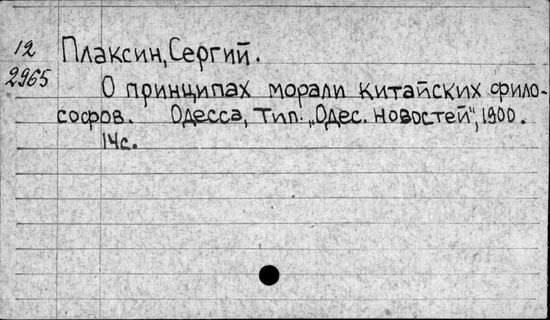 12
2965
Плаксин, Сергий.
О принципах морали китайских фило-
софов. Одесса, тип. „Одес. новостей", 1900.
14с.